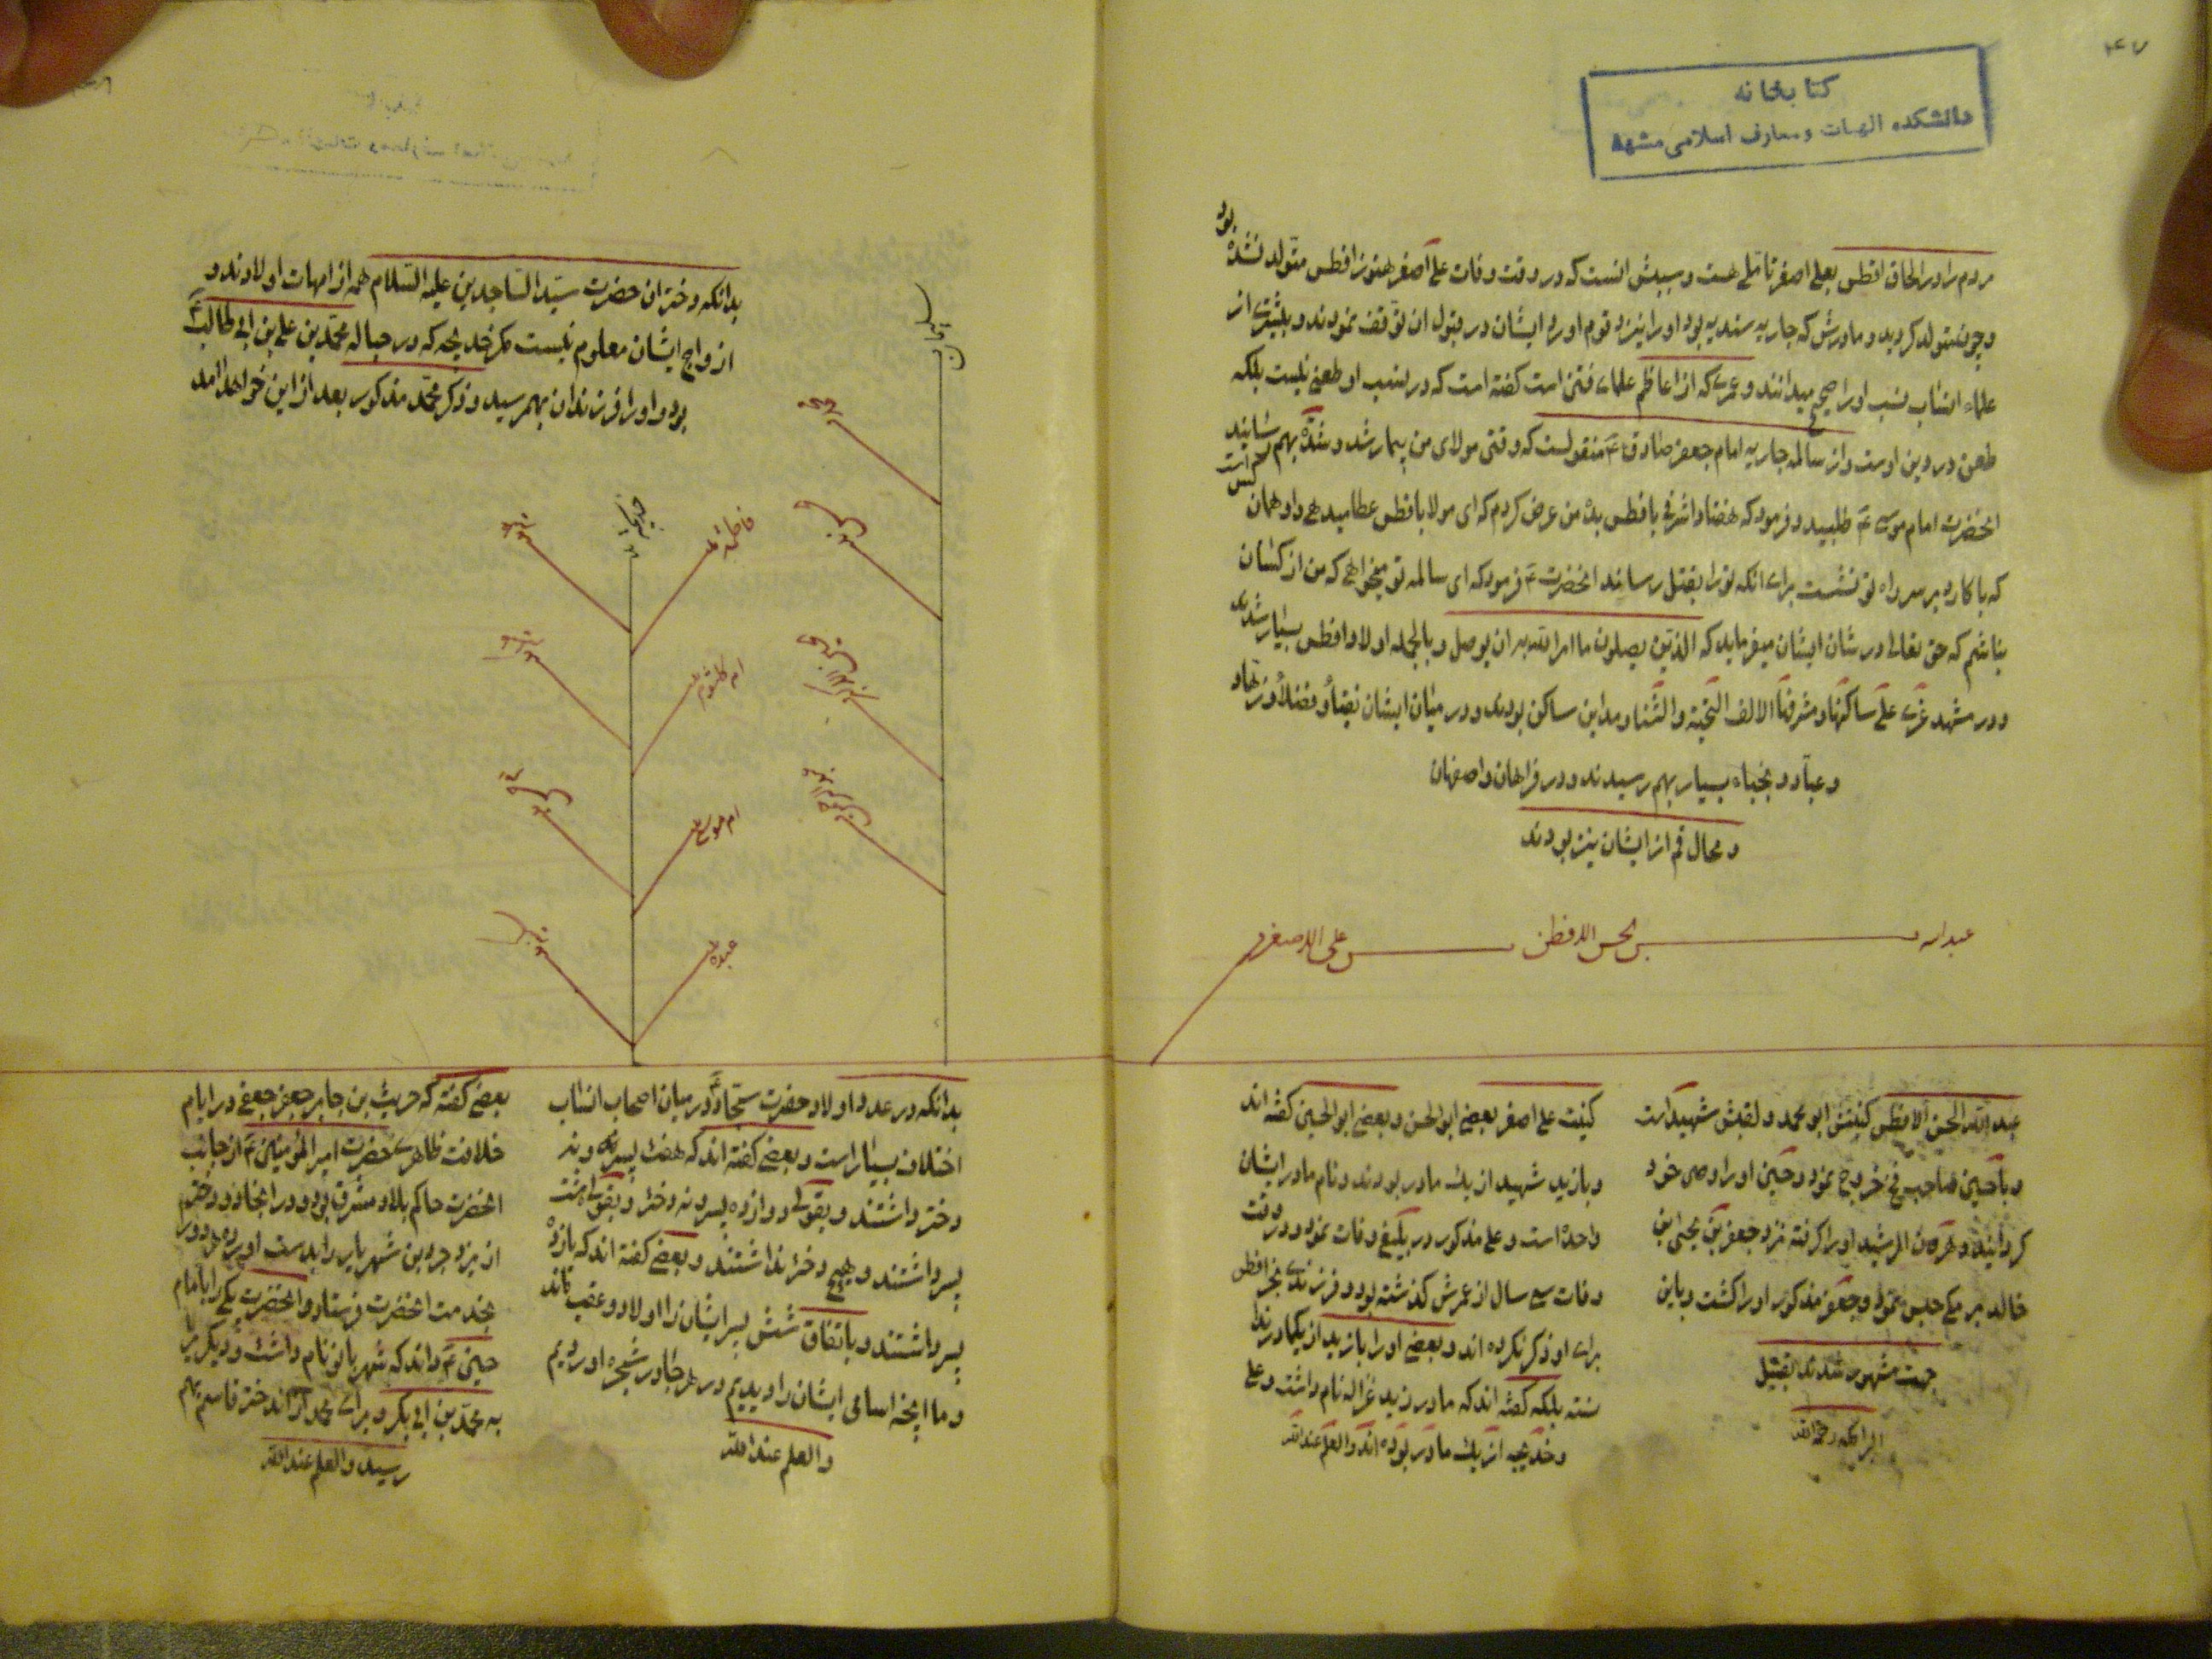 ۴۷
كتابخانه
دانشكده الهيات و معارف اسلامى مشهد
مردم را در الحاق افطس بعلی اصغر تاملی هست و سببش انست که در وقت وفات علی اصغر هنوز افطس متولد نشده بود
و چون متولد کردید و مادرش که جاریه سندیه بود او را بنزد قوم اورد ایشان در قبول ان توقف نمودند و بیشتری از
علماء انساب نسب او را صحیح میدانند و عمری که از اعاظم علماء فن است کفته است که در نسب او طعنی نیست بلکه
طعن در دین اوست و از سالمه جاریه امام جعفر صادق ع منقولست که وقتی مولای من بیمار شد و شدة بهم رسانید
انحضرت امام موسی ع طلبید و فرمود که هفتاد اشرفی بافطس بده من عرض کردم که ای مولا بافطس عطا میدهی و او همان کس است
که با کارد بر سر راه تو نشست برای انکه تو را بقتل رساند انحضرت ع فرمود که ای سالمه تو میخواهی که من از کسان
نباشم که حق تعالی در شان ایشان میفرماید که الذین یصلون ما امر الله به ان یوصل و بالجمله اولاد افطس بسیار شدند
و در مشهد غری علی ساکنها و مشرفها الالف التحیة والثنا و مداین ساکن بودند و در میان ایشان نقباء و فضلاء و زهاد
و عباد و نجباء بسیار بهم رسیدند و در فراهان و اصفهان
و محال قم از ایشان نیز بودند
عبدالله
بن الحسن الافطس
بن علی الاصغر
عبدالله الحسن الافطس کنیتش ابو محمد و لقبش شهید است
و با حسین صاحب فخ خروج نمود و حسین او را وصی خود
کردانید و هرون الرشید او را کرفته نزد جعفر بن یحیی ابن
خالد برمکی حبس نمود و جعفر مذکور او را کشت و باین
جهت مشهور شدند بقتیل
البرامکه رحمه الله
کنیت علی اصغر بعضی ابو الحسن و بعضی ابو الحسین کفته اند
و با زید شهید از یک مادر بودند و نام مادر ایشان
واحده است و علی مذکور در ینبع وفات نمود و در وقت
وفات سی سال از عمرش کذشته بود و فرزندی بجز افطس
برای او ذکر نکرده اند و بعضی او را با زید از یکمادر ندا
نسته بلکه کفته اند که مادر زید غزاله نام داشت و علی
و خدیجه از یک مادر بوده اند والعلم عند الله
بدانکه دختران حضرت سید الساجدین علیه السلام همه از امهات اولادند و
ازواج ایشان معلوم نیست مکر خدیجه که در حباله محمد بن علی بن ابی طالب ع
بود و او را فرزندان بهم رسید و ذکر محمد مذکور بعد از این خواهد امد
خدیجه
فاطمه
ام کلثوم
ام موسی
عبده
بدانکه در عدد اولاد حضرت سجاد ع در میان اصحاب انساب
اختلاف بسیار است و بعضی کفته اند که هفت پسر و نه
دختر داشتند و بقولی دوازده پسر و نه دختر و بقولی هشت
پسر داشتند و هیچ دختر نداشتند و بعضی کفته اند که یازده
پسر داشتند و باتفاق شش پسر ایشان را اولاد و عقب ماند
و ما انچه اسامی ایشان را دیدیم در هر جا در شجره اوردیم
والعلم عند الله
بعضی کفته که حریث بن جابر جعفر جعفی در ایام
خلافت ظاهری حضرت امیر المؤمنین ع از جانب
انحضرت حاکم بلاد مشرق بود و در انجا دو دختر
از یزدجرد بن شهریار را بدست اورده هر دو را
بخدمت انحضرت فرستاد و انحضرت یکی را بامام
حسین ع داند که شهر بانو نام داشت و دیکری را
به محمد بن ابی بکر و برای محمد از ان دختر قاسم بهم
رسید والعلم عند الله